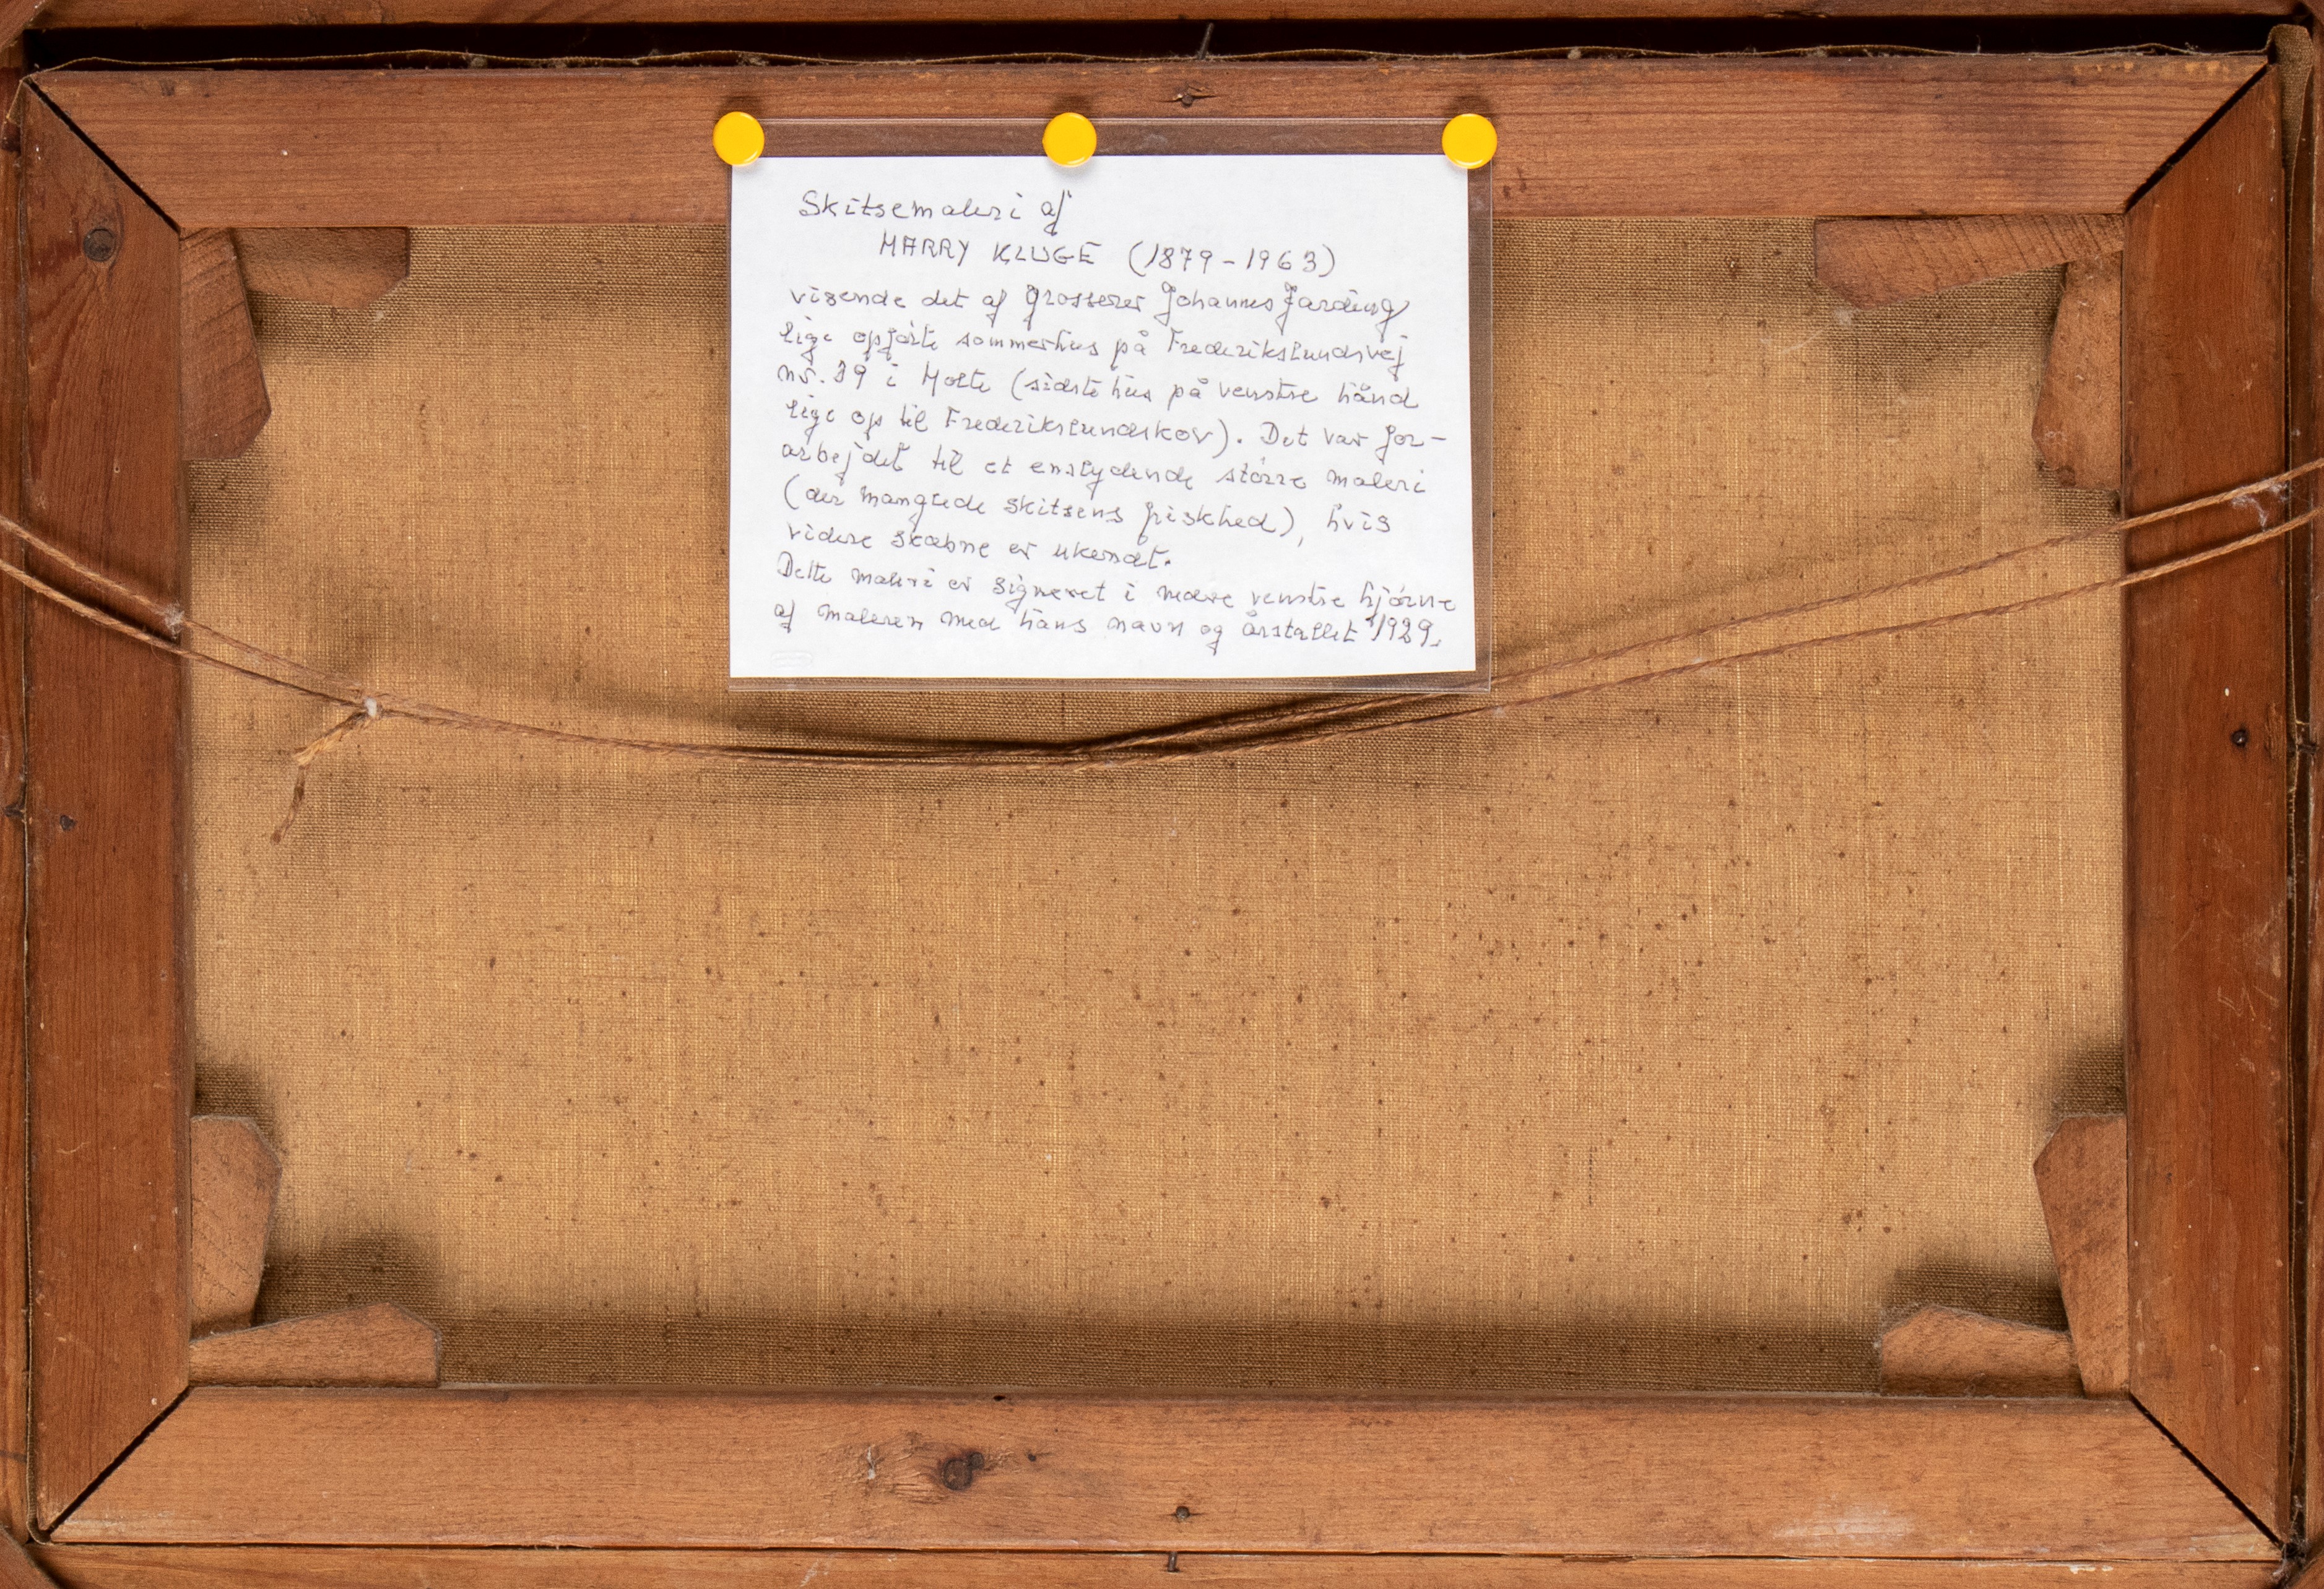 Skitsemaleri af
HARRY KLUGE (1879-1963)
visende det af Grosserer Johannes Jarding
lige opførte sommerhus på Frederikslundsvej
nr. 39 i Holte (sidste hus på venstre hånd
lige op til Frederikslundskov). Det var for-
arbejdet til et enslydende større maleri
(der manglede skitsens friskhed), hvis
videre skæbne er ukendt.
Dette maleri er signeret i nedre venstre hjørne
af maleren med hans navn og årstallet 1929.